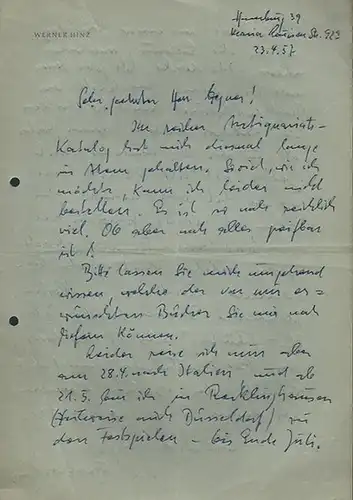 Hamburg 39
WERNER HINZ
23.4.57
Sehr geehrter Herr
Ihr reicher Antiquariats-
Katalog hat mich diesmal lange
in Atem gehalten. Soviel, wie ich
möchte, kann ich leider nicht
bestellen. Es ist so viel
viel. Ob aber noch alles greifbar
ist?
Bitte lassen Sie mich umgehend
wissen, welche der von mir er=
wünschten Bücher Sie mir noch
liefern können.
Leider reise ich nun aber
am 28.4. nach Italien und ab
21.5. bin ich in Recklinghausen
(zeitweise auch Düsseldorf) zu
den Festspielen – bis Ende Juli.